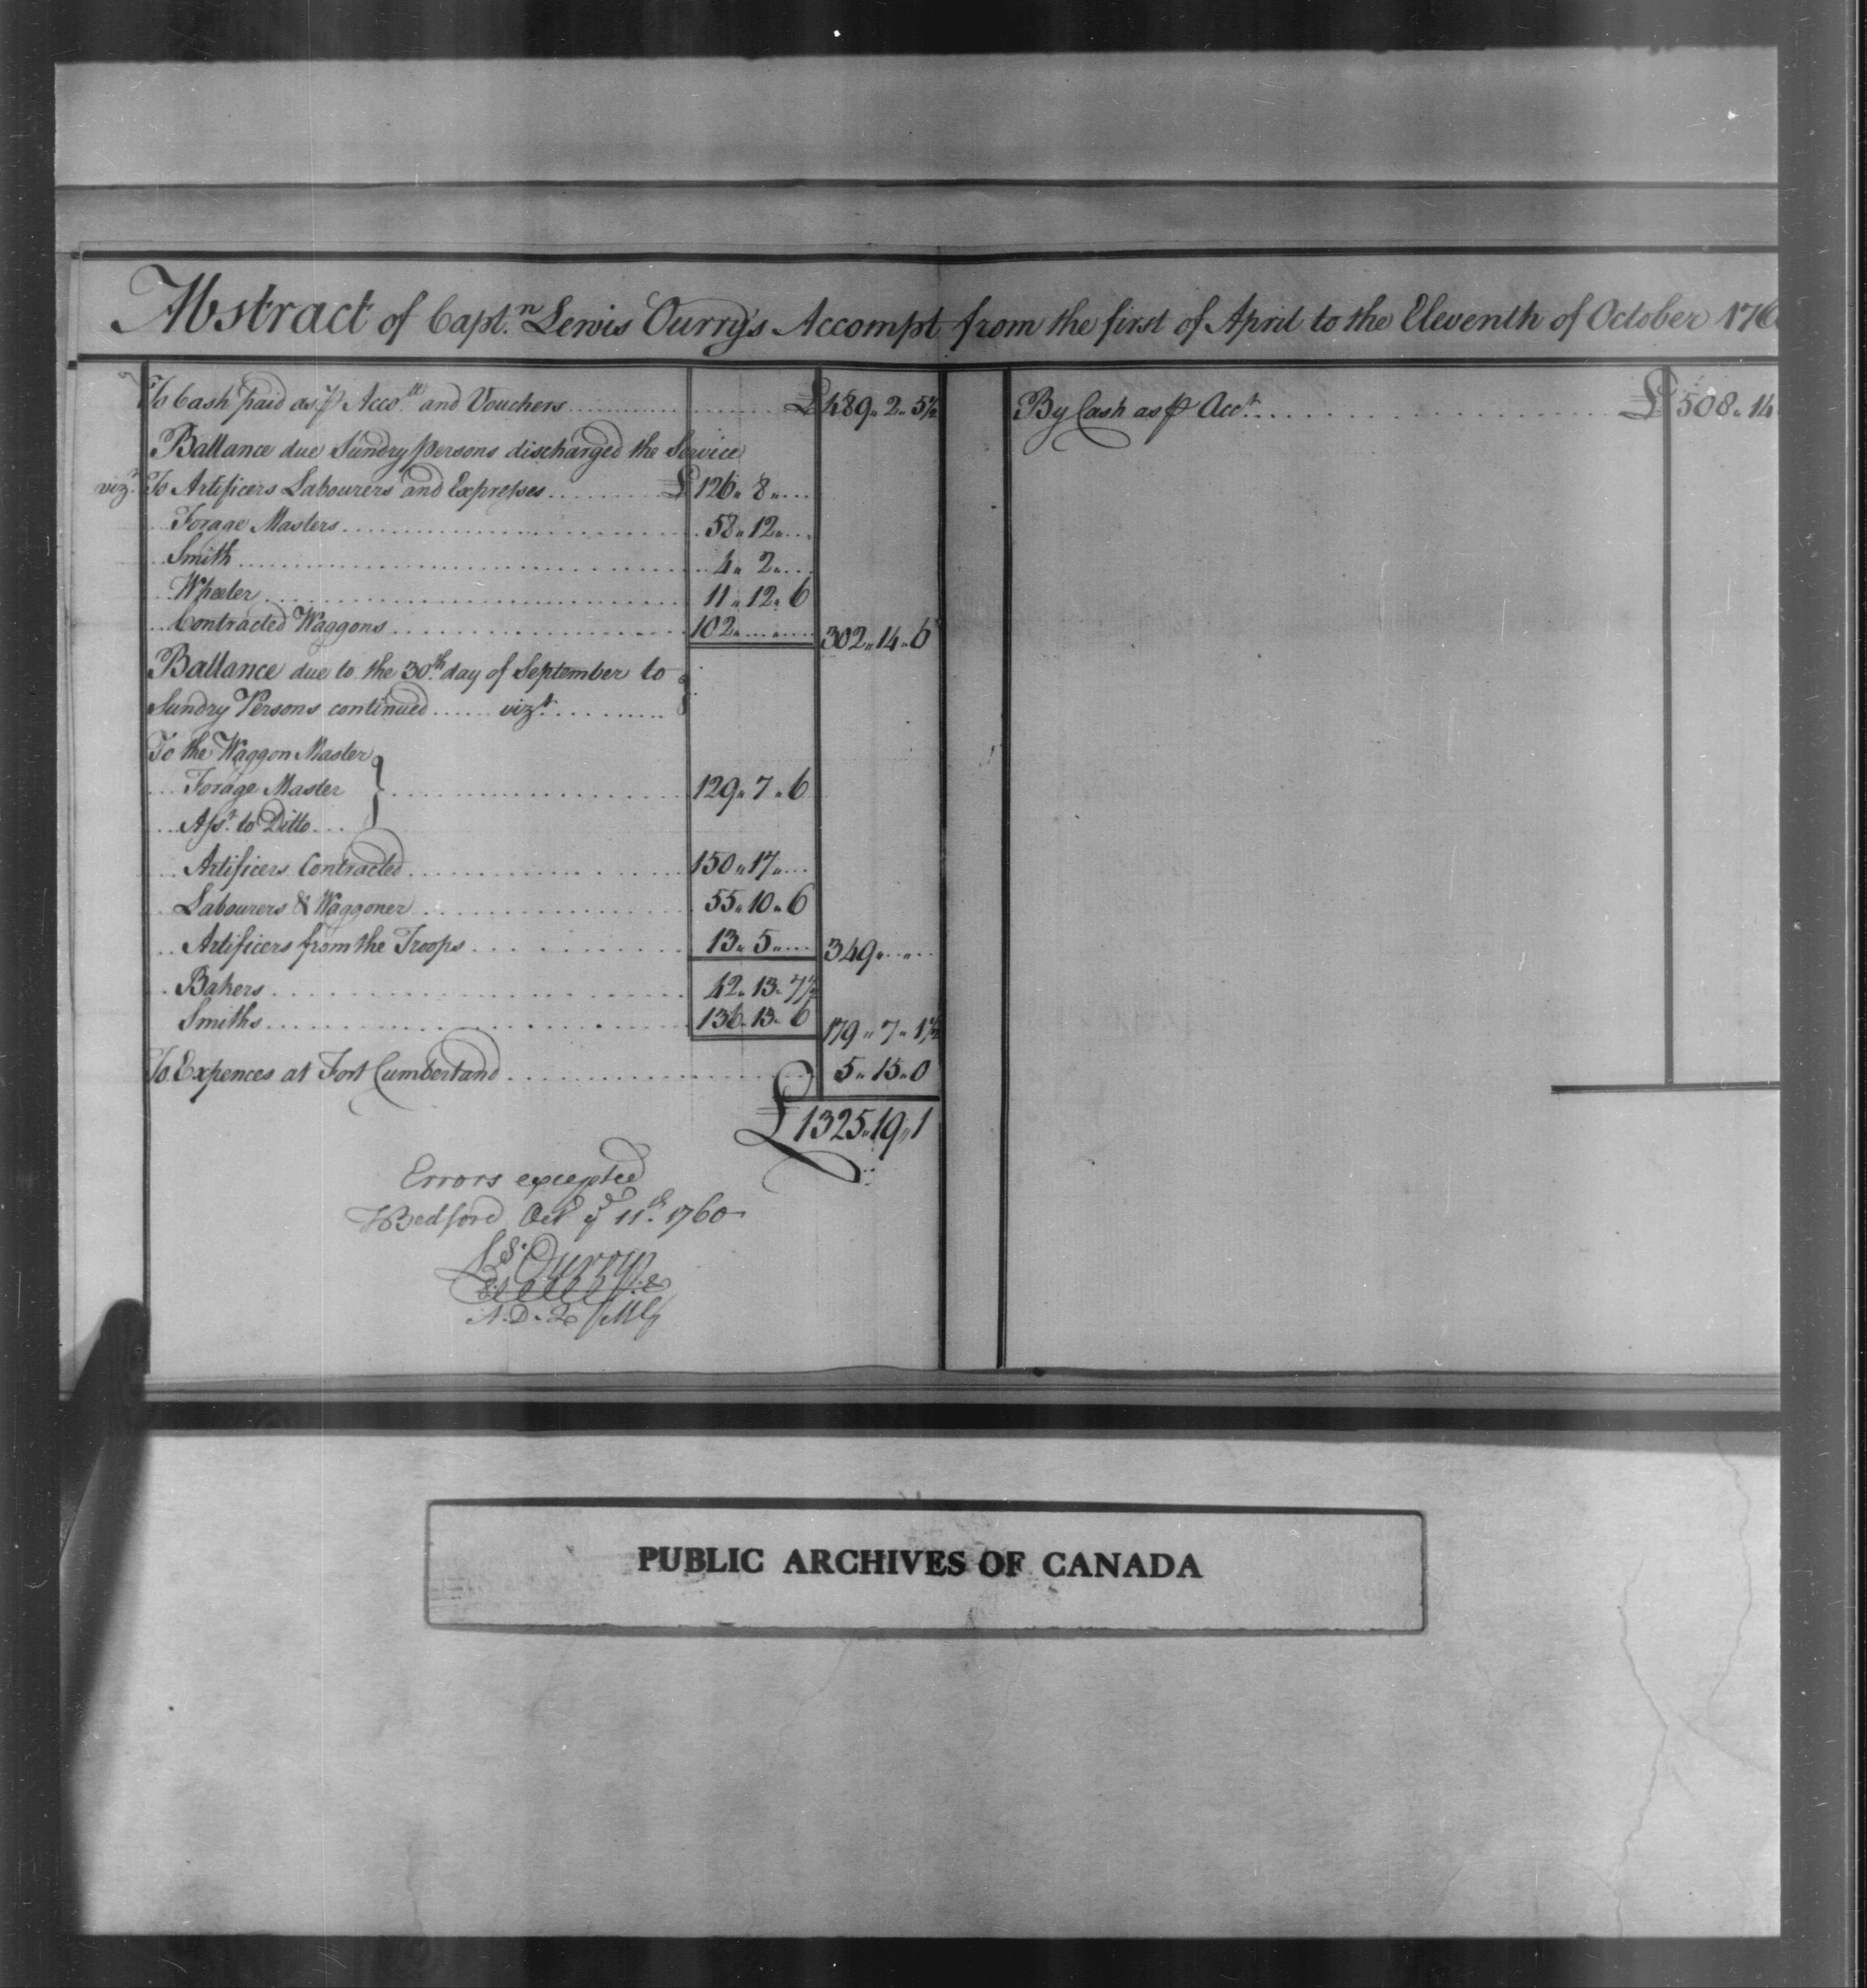 Abstract of Capt.n Lewis Ourry's Accompt from the first of April to the Eleventh of October 176
To Cash paid as ⅌ Acco.ts and Vouchers £ 489 " 2 " 5½
Ballance due Sundry persons discharged the Service
viz.t To Artificers Labourers and Expresses £ 126 " 8 "
Forage Masters 58 " 12 "
Smith 4 " 2 "
Wheeler 11 " 12 " 6
Contracted Waggons 102 " 302 " 14 " 6
Ballance due to the 30.th day of September to
Sundry Persons continued viz.t
To the Waggon Master
Forage Master 129 " 7 " 6
Ass.t to Ditto
Artificers Contracted 150 " 17 "
Labourers & Waggoner 55 " 10 " 6
Artificers from the Troops 13 " 5 " 349 "
Bakers 42 " 13 " 7½
Smiths 136 " 13 " 6 179 " 7 " 1½
To Expences at Fort Cumberland 5 " 15 " 0
£ 1325 " 19 " 1
Errors excepted
Bedford Oct ye 11th. 1760
Ls. Ourry
A. D. Q M G
By Cash as ⅌ Acc.t £ 508 " 14
PUBLIC ARCHIVES OF CANADA